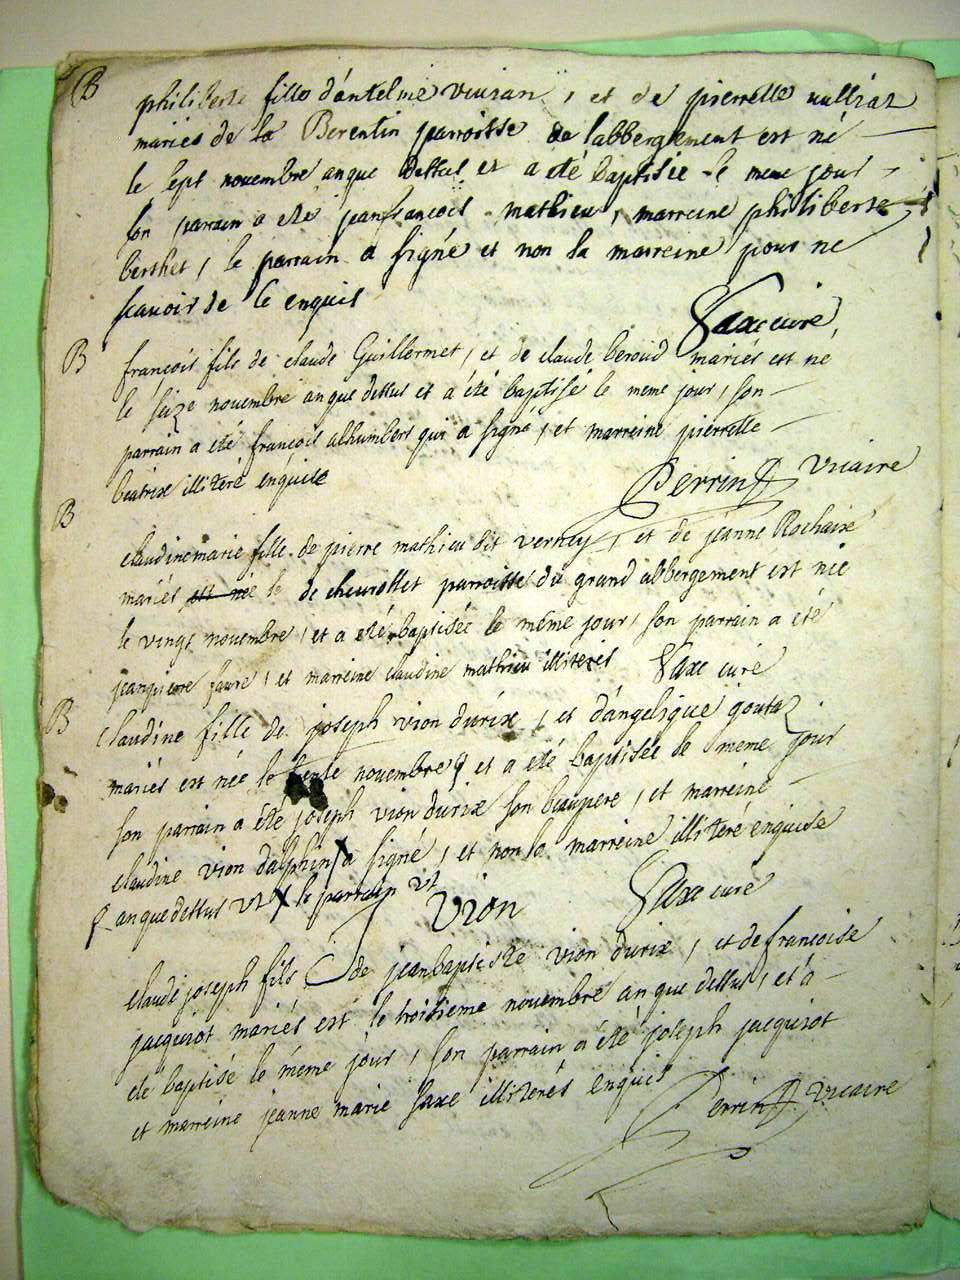 B philiberte fille d'antelme viuian, et de pierrette
mariés de la Berentin parroisse de labbergement est né
le sept novembre an que dessus et a été baptisée le meme jour
son parrain a eté jeanfrançois mathieu, marreine philiberte
berthet, le parrain a signé et non la marreine pour ne
scavoir de ce enquis Saxe curé
B françois fils de claude Guillermet, et de claude beroud mariés est né
le seize novembre an que dessus et a été baptisé le meme jour, son
parrain a été françois alhumbert qui a signé, et marreine pierrette
beatrix illiteré enquise Perrin Vicaire
B claudine marie fille de pierre mathieu dit verney, et de jeanne Rochaix
mariés est née le de cheurottet parroisse du grand abbergement est née
le vingt novembre, et a eté baptisée le même jour, son parrain a été
jeanpierre favre, et marreine claudine mathieu illiterés Saxe curé
B claudine fille de joseph vion durix, et d'angelique goutaz
mariés est née le trente novembre et a été baptisée le meme jour
son parrain a été joseph vion durix son beaupere, et marreine
claudine vion dalphin X a signé, et non la marreine illiteré enquise
an que dessus vt X le parrain vt vion Saxe curé
claude joseph fils de jeanbaptiste vion durix, et de françoise
jacquiot mariés est le troisieme novembre an que dessus, et a
eté baptisé le même jour, son parrain a été joseph jacquiot
et marreine jeanne marie saxe illiterés enquis Perrin vicaire